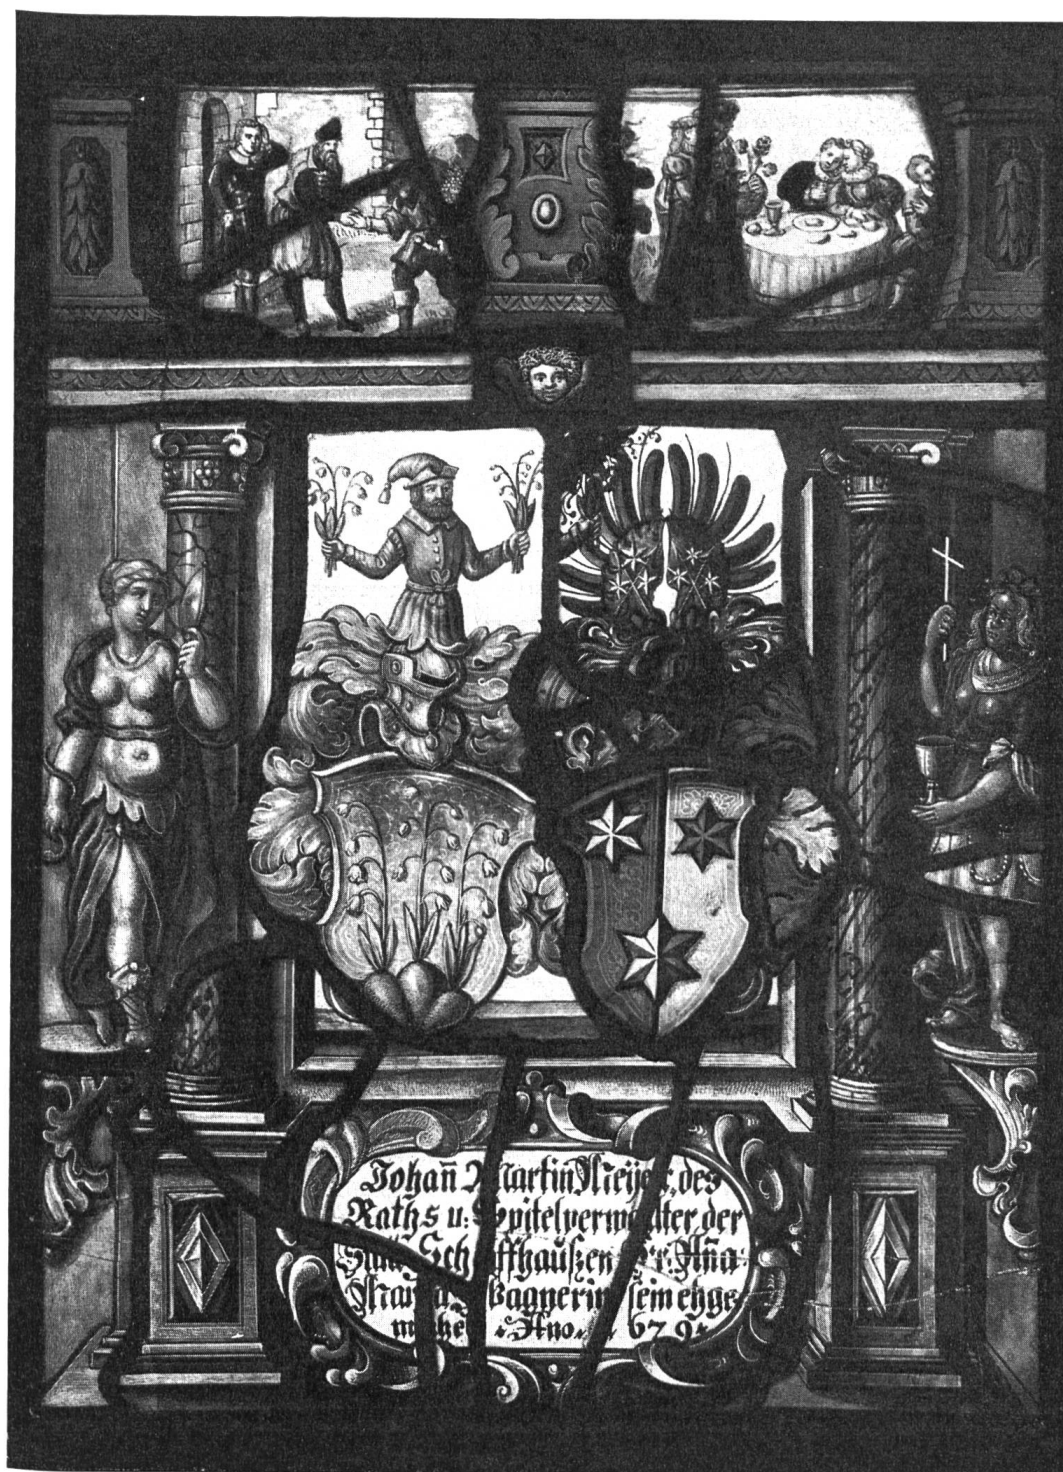 Johañ Martin Meÿer, des
Raths u: Spitelverwalter der
Statt Schaffhaußen Fr: Añа
Wagnerin sein ehge-
mahel Año. 1679.